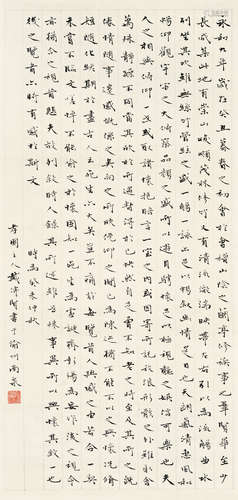 永和九年歲在癸丑暮春之初會於會稽山陰之蘭亭修禊事也群賢畢至少
長咸集此地有崇山峻嶺茂林修竹又有清流激湍映帶左右引以為流觴曲水
列坐其次雖無絲竹管絃之盛一觴一詠亦足以暢敘幽情是日也天朗氣清惠風和
暢仰觀宇宙之大俯察品類之盛所以遊目騁懷足以極視聽之娛信可樂也夫
人之相與俯仰一世或取諸懷抱悟言一室之內或因寄所託放浪形骸之外雖趣舍
萬殊靜躁不同當其欣於所遇暫得於己快然自足不知老之將至及其所之既
倦情隨事遷感慨係之矣向之所欣俛仰之間以為陳迹猶不能不以之興懷況脩
短隨化終期於盡古人云死生亦大矣豈不痛哉每覽昔人興感之由若合一契
未嘗不臨文嗟悼不能喻之於懷固知一死生為虛誕齊彭殤為妄作後之視今
亦猶今之視昔悲夫故列敘時人錄其所述雖世殊事異所以興懷其致一也
後之覽者亦將有感於斯文
時為癸未仲秋
主人書于渝州南泉